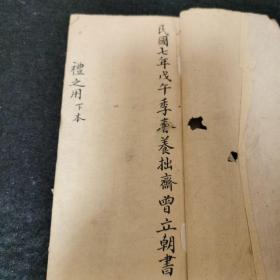 民國七年戊午季春養拙齋曾立朝書
禮之用下本